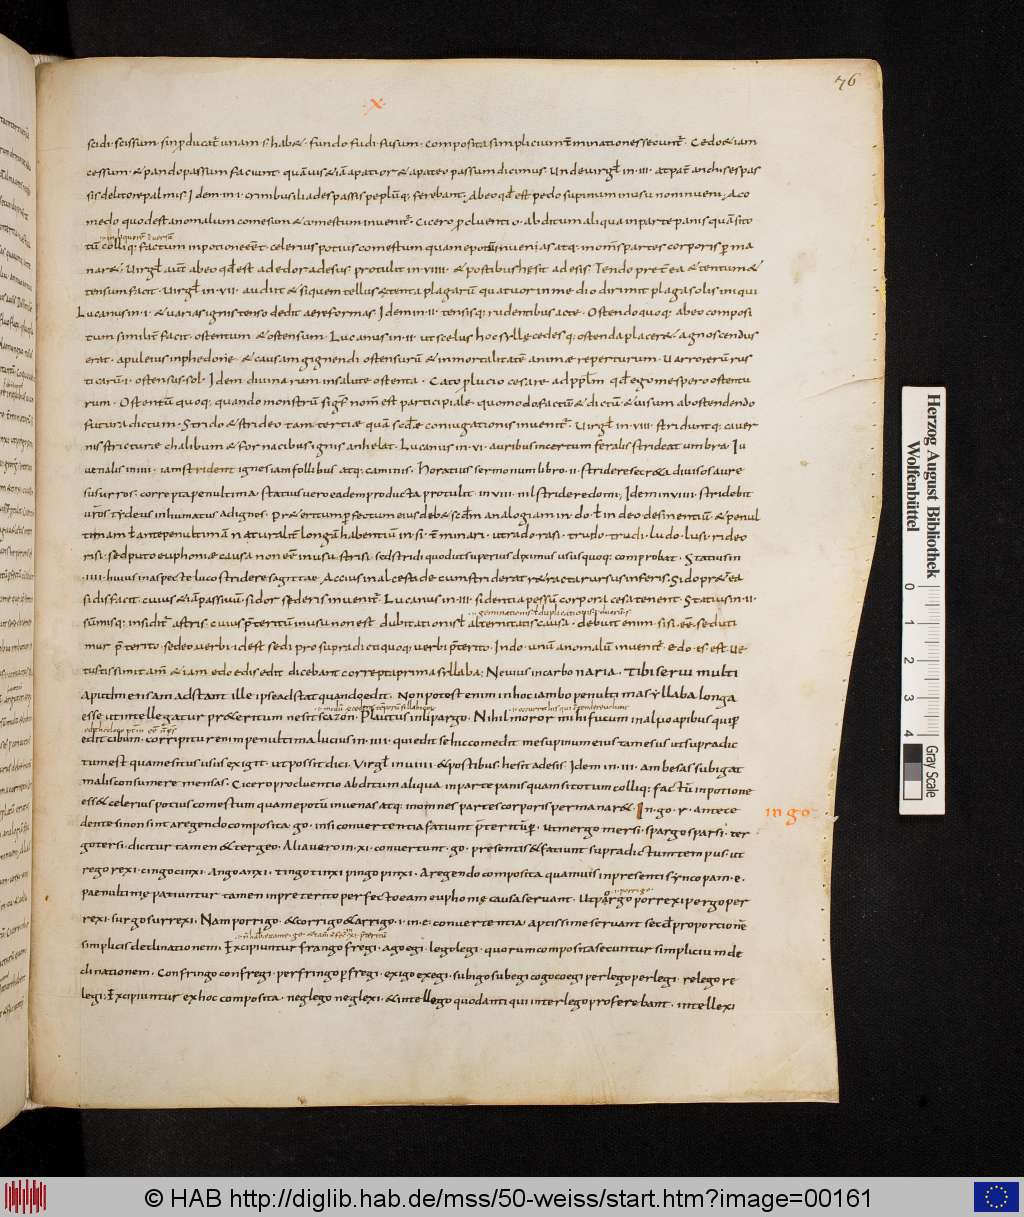 76
·X·
scidi· scissum· sin producatur unam s habet· fundo fudi fusum· composita simplicium terminationes secuntur· Cedo etiam
cessum· & pando passum faciunt· quamuis & iam apatior & apateo passum dicimus· Unde uirgł in·III· at pater anchises pas
sis de litore palmis Idem in·I· crinibus iliades passis peplumq; ferebant; Abeo qđ est pedo supinum in usu non inueni; A co
medo quod est anomalum comesum & comestum inuenitur· Cicero pro cluentio· abditum aliqua in parte panis quam si to
tum colliq; factum in potione esset· celerius potius comestum quam epotum inuenias atq; in omnes partes corporis perma
naret· Uirgł aut abeo qđ est adedor adesus protulit in·VIIII· & postibus hesit adesis· Tendo preterea & tentum &
tensum facit· Uirgł in·VII· audiit & siquem tellus extenta plagarum quatuor in medio dirimit plaga solis iniqui
Lucanus in·I· & uarias ignis tenso dedit aere formas Idem in·II· tensisq; rudentibus acte· Ostendo quoq; abeo composi
tum similiter facit· ostentum & ostensum· Lucanus in·II· ut scelus hoc syllę cedesq; ostenda placeret· agnoscendus
erat· apuleius in phedone· & causam gignendi ostensurum & inmortalitatem animae reperturum· Uarro rerum rus
ticarum·I· ostensus sol· Idem diuinarum in salute ostenta· Cato pro lucio cesare ad pp̄lm qđ ego me spero ostentu
rum· Ostentum quoq; quando monstrum sigr̄ nom̄ est participiale· quomodo factum & dictum & uisum ab ostendendo
futura dictum· Strido & strideo tam tertiae quam secundae coniugationis inuenitur· Uirgł in·VIII· striduntq; cauer
nis stricturae chalibum & fornacibus ignis anhelat· Lucanus in·VI· auribus incertum feralis strideat umbra· Iu
uenalis in·IIII· iam strident ignes iam follibus atq; caminis· Horatius sermonum libro·II· stridere secreta diuisos aure
susurros· correpta penultima· statius uero eadem producta protulit in·VIII· nil stridere domi; Idem in·VIIII· stridebit
uros tydeus inhumatus ad ignes· Preteritum perfectum eius debet secundum analogiam in·do· ł in deo desinentium & penul
timam ł antepenultimam naturaliter longam habentium in·si· terminari· ut rado rasi· trudo trudi· ludo· lusi· rideo
risi· sed puto euphoniae causa non esse in usu strisi· sed stridi quod ut superius diximus usus quoq; comprobat· Statius in
·IIII· huius in aspecte luco stridere sagittae· Accius in alcestade· cum striderat retracta rursus inferis· Sido preterea
sidi facit· cuius etiam passiuum· sidor sederis inuenitur· Lucanus in·III· sidentia pessum corpora cesa tenent· Statius in·II·
·:· geminationis ł duplicationis pruerbis
summisq; insiditur astris· cuius preteritum in usu non est dubitationis ł alternitatis causa· debuit enim sisi esse· sed uti
mur preterito· sedeo uerbi· idest sedi pro supradicti quoq; uerbi preterito· In do· unum anomalum inuenitur· edo· es· est· ue
tustissimi tamen & iam edo edis edit dicebant correpta prima syllaba; Neuius in carbonaria· Tibi serui multi
apud mensam adstant· ille ipse adstat quando edit· Non potest enim in hoc iambo penultima syllaba longa
esse ut intellegatur preteritum ne sit scazon· Plautus in lipargo· Nihil moror mihi fucum in aluo apibus qui per
edit cibum· corripitur enim penultima· lucius in·IIII· qui edit se hic comedit me supinum eius tam esus ut supradic
tum est quam esitus usus exigit· ut possit dici· Uirgł in·VIIII· & postibus· hesit adesis· Idem in·III· ambesas subigat
malis consumere mensas· Cicero pro cluentio abditum aliqua in parte panis quam si totum colliq; factum in potione
esset celerius potius comestum quam epotum inuenias atq; in omnes partes corporis permanaret· In·go· r· antece
in go
dente si non sint a regendo composita· go· in si conuertentia faciunt preteritum per· ut mergo mersi· spargo sparsi· ter
go tersi· dicitur tamen & tergeo· Alia uero in·xi· conuertunt·go· presentis & faciunt supradictum tempus· ut
rego rexi· cingo cinxi· Ango anxi· tingo tinxi pingo pinxi· A regendo composita quamuis in presenti syncopam·e·
paenultimę patiuntur tamen in preterito perfecto eam euphonię causa seruant· Ut porgo porrexi pergo per
·:· porrigo·
rexi· surgo surrexi· Nam porrigo· & corrigo & arrigo· i· in·e· conuertentia· aptissime seruant secđ proportionem
simplicis declinationem· Excipiuntur frango fregi· ago egi· lego legi· quorum composita secuntur simplicium de
clinationem· Confringo confregi· perfringo perfregi· exigo exegi· subigo subegi cogo coegi perlego perlegi· relego re
legi; Excipiuntur ex hoc composita· neglego neglexi· & intellego quod antiqui interlego proferebant· intellexi
Herzog August Bibliothek
Wolfenbüttel
0 1 2 3 4
Gray Scale
© HAB http://diglib.hab.de/mss/50-weiss/start.htm?image=00161